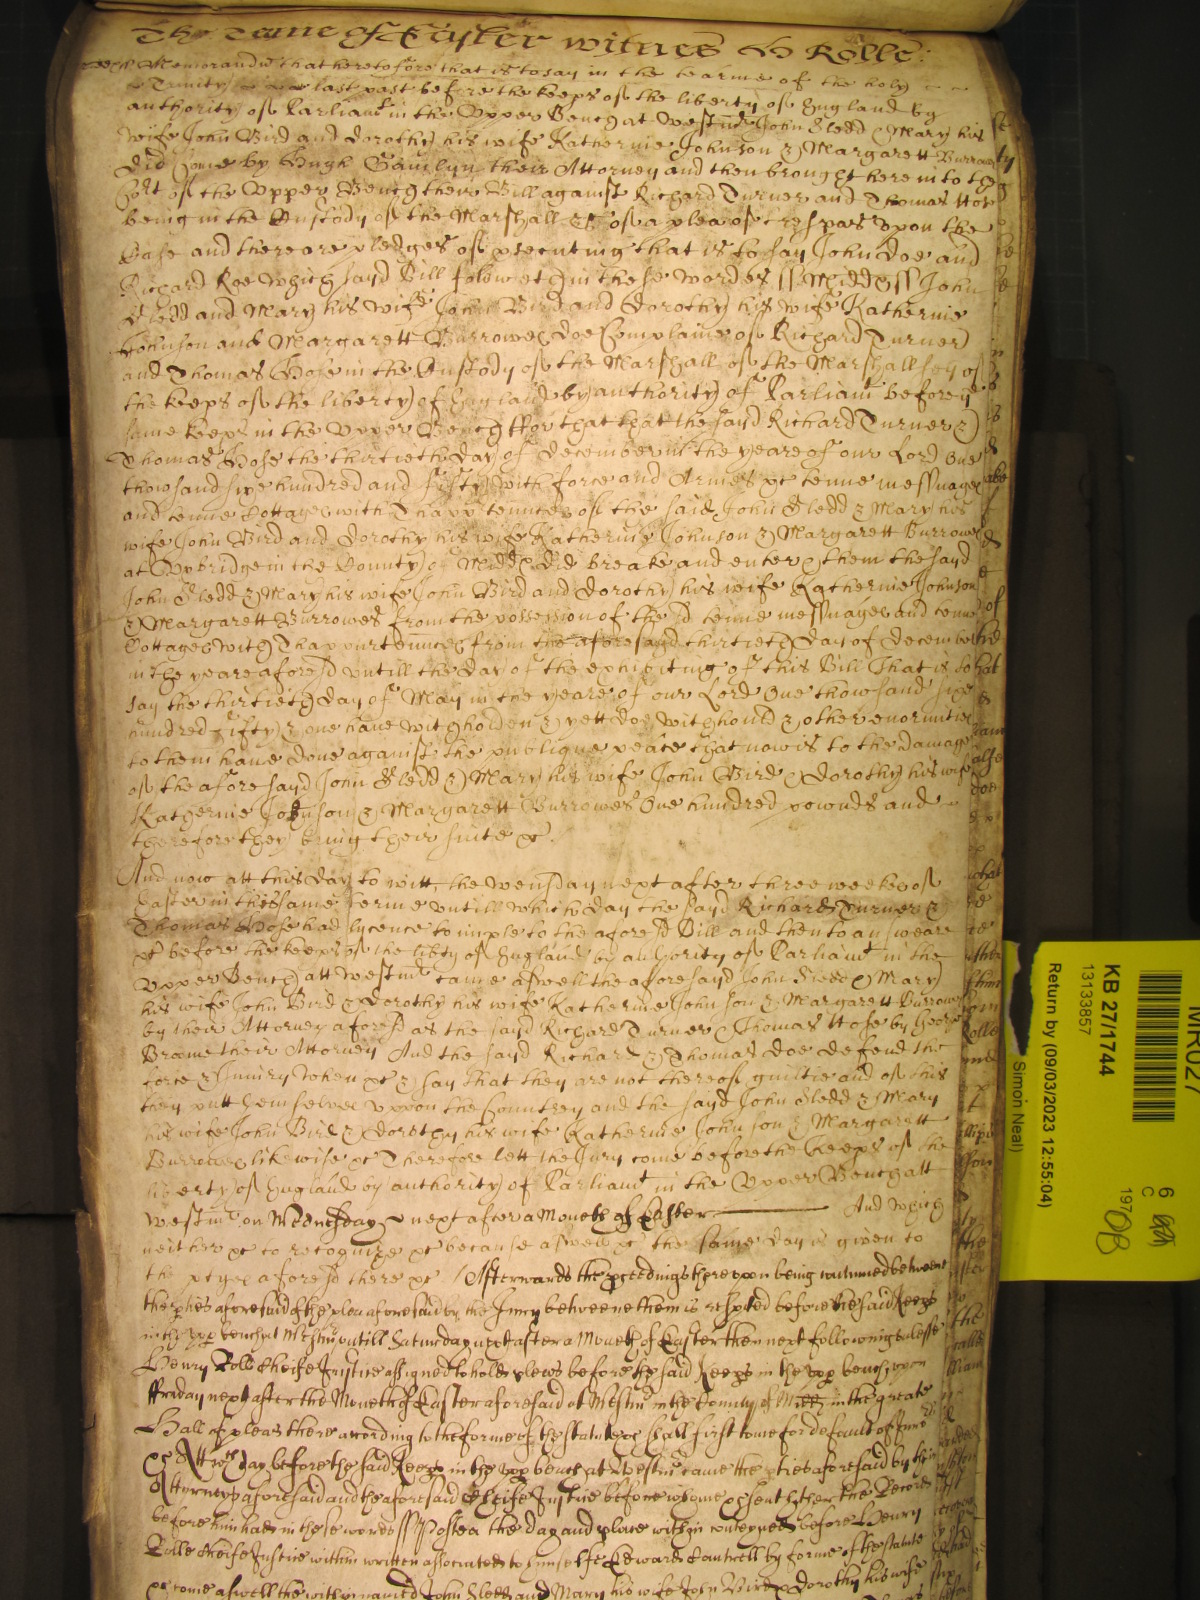 The Terme of Easter witnes H Rolle:
Memorandm that heretofore that is to say in the tearme of the holy
Trinity last past before the keeps of the liberty of England by
authority of Parliamt in the Upper Bench at Westmr John Sledd & Mary his
wife John Bird and dorothy his wife Katherine Johnson & Margarett Burrowes
did Come by Hugh their Attorney and then brought here in to the
Court of the Upper Bench their Bill against Richard Turner and Thomas Hose
being in the Custody of the Marshall &c of a plea of trespas upon the
Case and there are pledges of psecuting that is to say John Doe and
Richard Roe which sayd Bill followeth in these wordes ss Middx ss John
Sledd and Mary his wife John Bird and dorothy his wife Katherine
Johnson and Margarett Burrowes doe Complaine of Richard Turner
and Thomas Hose in the Custody of the Marshall of the Marshallsey of
the keeps of the liberty of England by authority of Parliamt before ye
same keeps in the Upper Bench ffor that that the sayd Richard Turner &
Thomas Hose the thirtieth day of december in the yeare of our Lord One
thowsand sixe hundred and fifty with force and Armes &c tenne messuages
and tenne Cottages with Thapptennces of the said John Sledd & Mary his
wife John Bird and dorothy his wife Katherine Johnson & Margarett Burrowes
at Uxbridge in the County of Middx did breake and enter & them the sayd
John Sledd & Mary his wife John Bird and dorothy his wife Katherine Johnson
& Margarett Burrowes from the possession of the sd tenne messuages and tenne
Cottages with Thappurtennces from the aforesayd thirtieth day of decembr
in the yeare aforesd untill the day of the exhibiting of this Bill That is to
say the thirtieth day of May in the yeare of our Lord One thowsand sixe
hundred fifty & one have withholden & yett doe withhould & other enormities
to them have done against the publique peace that now is to the damage
of the aforesayd John Sledd & Mary his wife John Bird & dorothy his wife
Katherine Johnson & Margarett Burrowes One hundred pounds and
therefore they bring their suite &c.
And now att this day to witt, the wensday next after three weekes of
Easter in this same terme untill which day the sayd Richard Turner &
Thomas Hose had lycence to imple to the aforesd Bill and then to answeare
&c before the keeps of the libty of England by authority of Parliamt in the
Upper Bench att Westmr came aswell the aforesayd John Sledd & Mary
his wife John Bird & dorothy his wife Katherine Johnson & Margarett Burrowes
by their Attorney aforesd as the sayd Richard Turner & Thomas Hose by George
Broome their Attorney And the sayd Richard & Thomas doe defend the
force & Iniury when &c & say that they are not thereof guiltie and of this
they putt themselves uppon the Countrey and the sayd John Sledd & Mary
his wife John Bird & dorothy his wife Katherine Johnson & Margarett
Burrowes likewise &c Therefore lett the Jury come before the Keeps of the
liberty of England by authority of Parliamt in the Upper Bench att
Westmr on Wednesday next after a Moneth of Easter And which
neither &c to recognize &c because aswell &c the same day is given to
the ptyes aforesd there &c Afterwards the pceedings thereupon being continued betweene
the pties aforesaid of the plea aforesaid by the Jury betweene them is respited before the said Keeps
in the upp bench at Westmr untill Saturday next after a Moneth of Easter then next following unlesse
Henry Rolle Cheife Justice assigned to hold pleas before the said Keeps in the upp bench upon
ffriday next after the Moneth of Easter aforesaid at Westmr in the County of Middx in the greate
Hall of pleas there according to the forme of the statute &c shall first come for default of Jurs
&c Att wch day before the said Keeps in the upp bench at Westmr came the pties aforesaid by their
Attorneys aforesaid and the aforesaid Cheife Justice before whome &c sent hither the Record
before him had in these words ss Postea the day and place within conteyned before Henry
Rolle Cheife Justice within written associated to himselfe Edward Cantwell by forme of the statute
&c come aswell the within named John Sledd and Mary his wife John Bird & Dorothy his wife
MR027
KB 27/1744
13133857
Return by (09/03/2023 12:55:04)
Simon Neal
6
C
197